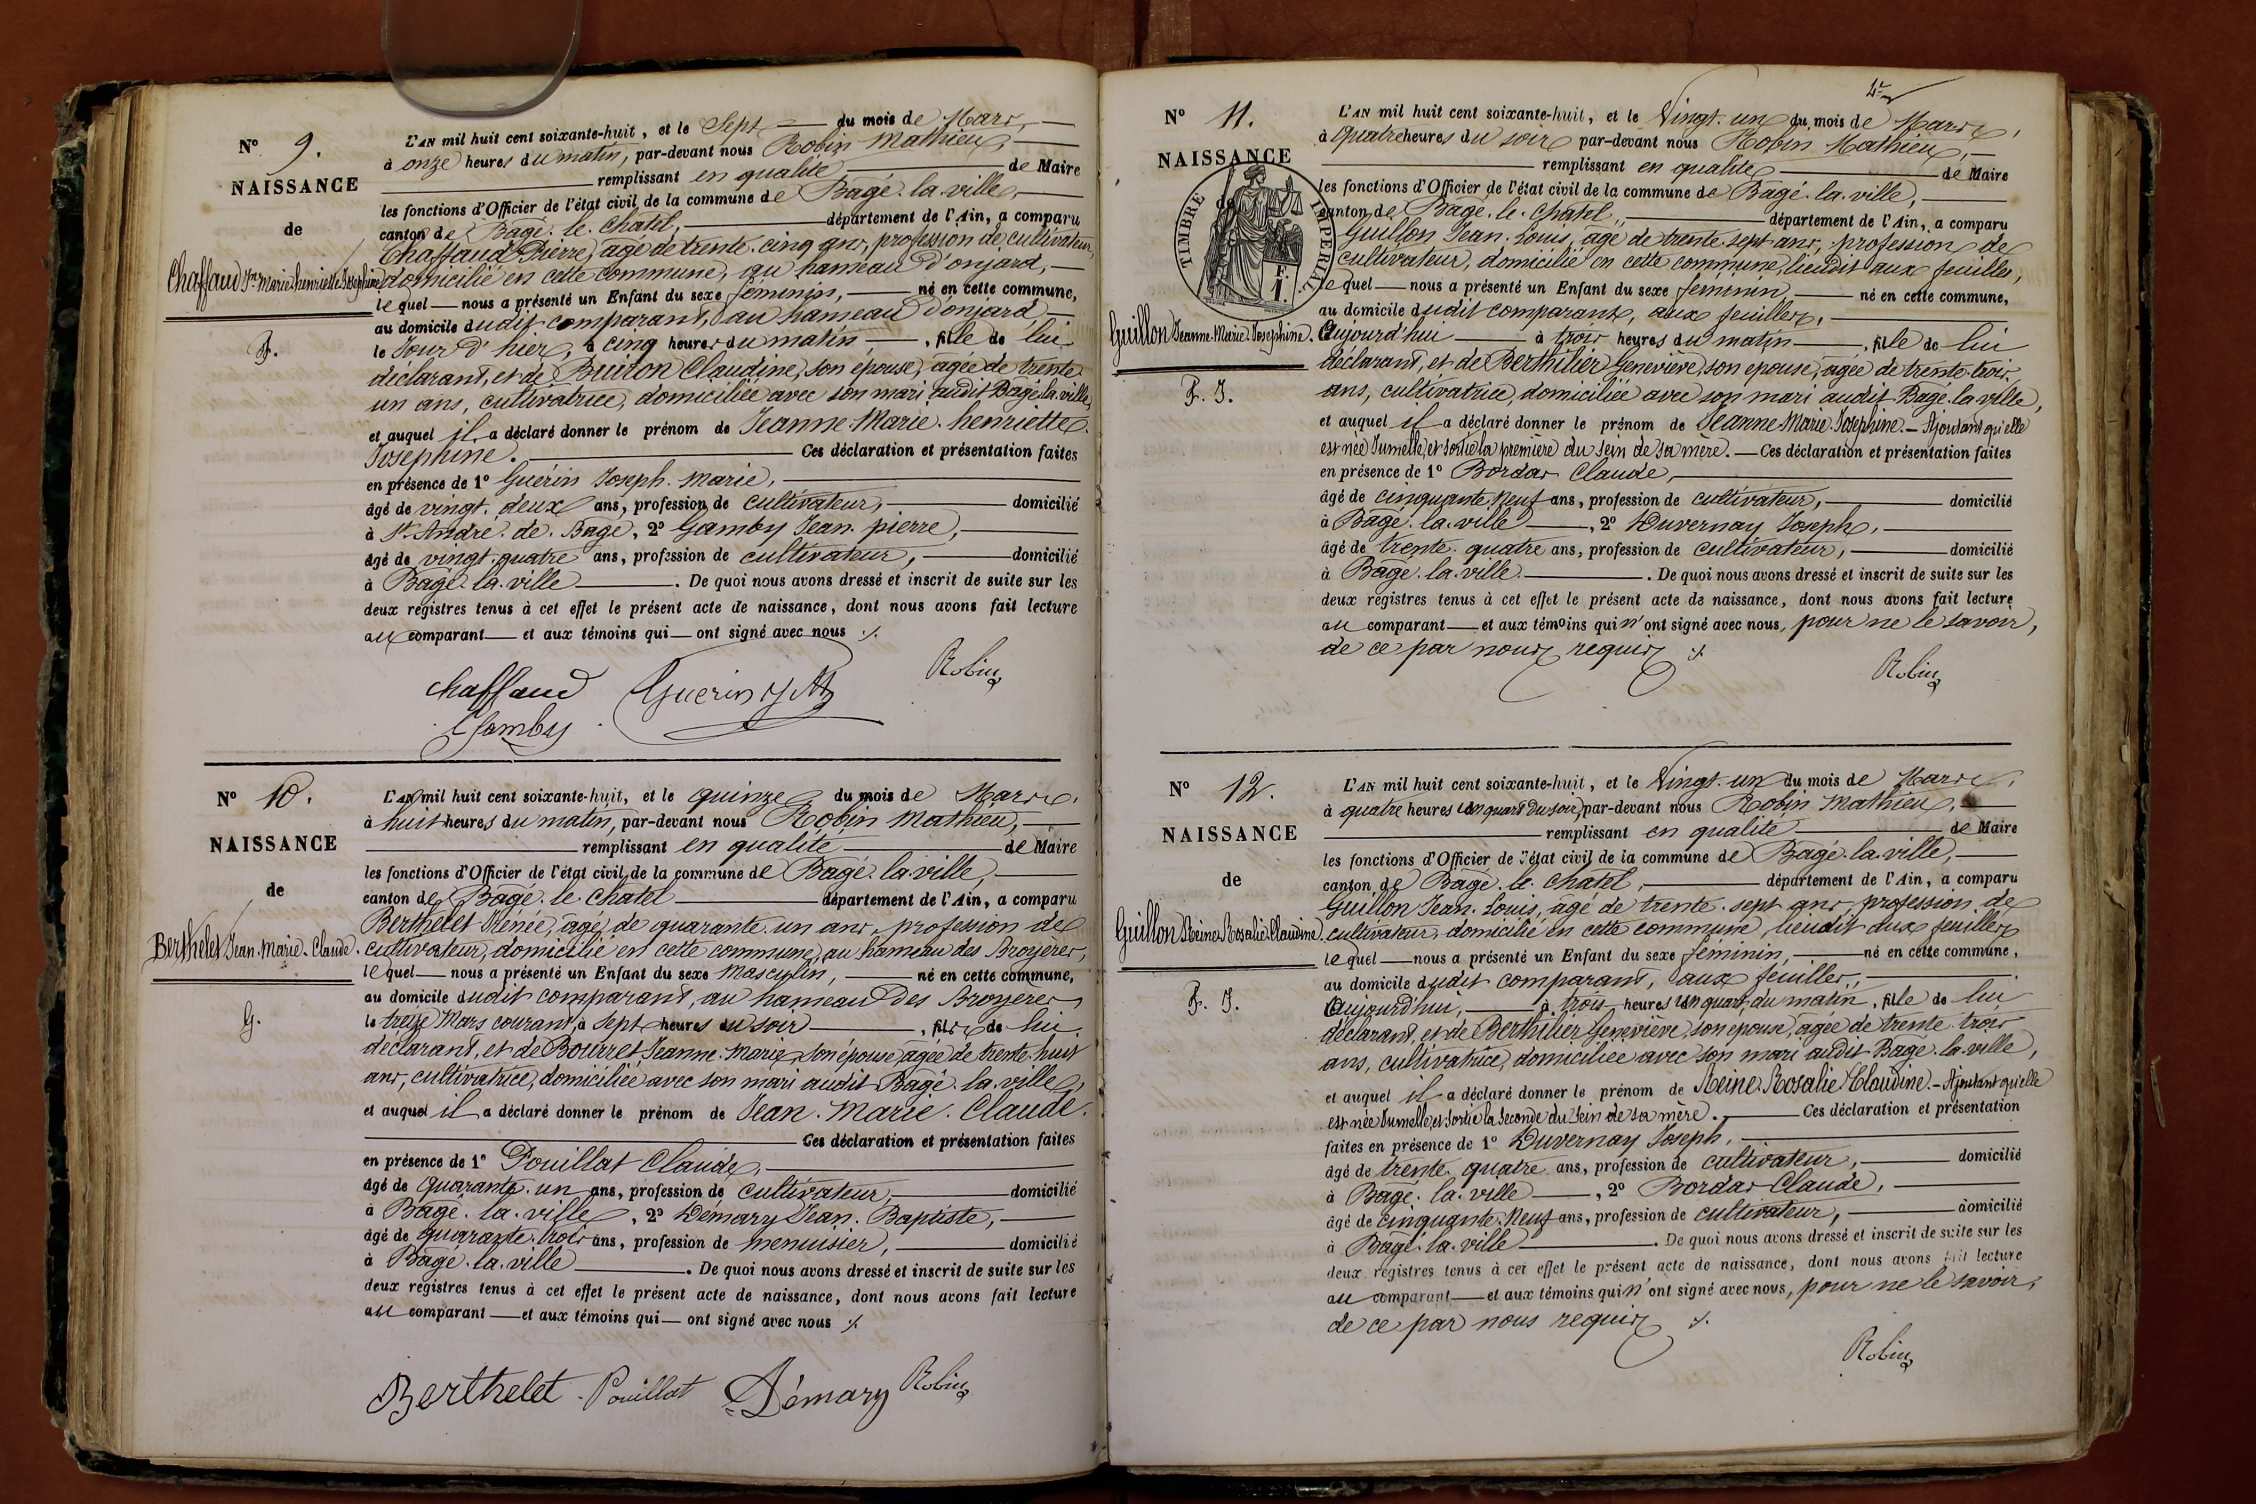 N° 9.
NAISSANCE
de
Chaffaud Jne Marie henriette Josephine
F.
L'AN mil huit cent soixante-huit, et le Sept du mois de Mars,
à onze heures du matin, par-devant nous Robin Mathieu,
remplissant en qualité de Maire
les fonctions d'Officier de l'état civil de la commune de Bagé-la-ville,
canton de Bagé-le-Chatel, département de l'Ain, a comparu
Chaffaud Pierre, agé de trente-cinq ans, profession de cultivateur,
domicilié en cette commune, au hameau d'onjard,
lequel nous a présenté un Enfant du sexe féminin, né en cette commune,
au domicile dudit comparant, au hameau d'onjard,
le Jour d'hier, à cinq heures du matin, fille de lui
déclarant, et de Buiron Claudine, son épouse, agée de trente
un ans, cultivatrice, domiciliée avec son mari audit Bagé-la-ville,
et auquel il a déclaré donner le prénom de Jeanne-Marie-henriette
Josephine. Ces déclaration et présentation faites
en présence de 1° Guérin Joseph-Marie,
âgé de vingt-deux ans, profession de cultivateur, domicilié
à St-André-de-Bagé, 2° Gamby Jean-pierre,
âgé de vingt-quatre ans, profession de cultivateur, domicilié
à Bagé-la-ville. De quoi nous avons dressé et inscrit de suite sur les
deux registres tenus à cet effet le présent acte de naissance, dont nous avons fait lecture
au comparant et aux témoins qui ont signé avec nous ./.
chaffaud Guerin J M Robin
Gamby
N° 10.
NAISSANCE
de
Berthelet Jean-Marie-Claude.
G.
L'AN mil huit cent soixante-huit, et le quinze du mois de Mars,
à huit heures du matin, par-devant nous Robin Mathieu,
remplissant en qualité de Maire
les fonctions d'Officier de l'état civil de la commune de Bagé-la-ville,
canton de Bagé-le-Chatel département de l'Ain, a comparu
Berthelet Irénée, agé de quarante-un ans, profession de
cultivateur, domicilié en cette commune, au hameau des Broyeres,
lequel nous a présenté un Enfant du sexe Masculin, né en cette commune,
au domicile dudit comparant, au hameau Des Broyeres,
le treize Mars courant, à sept heures du soir, fils de lui
déclarant, et de Bourret Jeanne-Marie, son épouse, agée de trente-huit
ans, cultivatrice, domiciliée avec son mari audit Bagé-la-ville,
et auquel il a déclaré donner le prénom de Jean-Marie-Claude.
Ces déclaration et présentation faites
en présence de 1° Pouillat Claude,
âgé de quarante-un ans, profession de cultivateur, domicilié
à Bagé-la-ville, 2° Démary Jean-Baptiste,
âgé de quarante-trois ans, profession de menuisier, domicilié
à Bagé-la-ville. De quoi nous avons dressé et inscrit de suite sur les
deux registres tenus à cet effet le présent acte de naissance, dont nous avons fait lecture
au comparant et aux témoins qui ont signé avec nous ./.
Berthelet Pouillat Démary Robin
N° 11.
NAISSANCE
de
TIMBRE IMPERIAL
Guillon Jeanne-Marie-Josephine.
F. J.
L'AN mil huit cent soixante-huit, et le Vingt-un du mois de Mars,
à quatre heures du soir par-devant nous Robin Mathieu,
remplissant en qualité de Maire
les fonctions d'Officier de l'état civil de la commune de Bagé-la-ville,
canton de Bagé-le-Chatel, département de l'Ain, a comparu
Guillon Jean-Louis, agé de trente-sept ans, profession de
cultivateur, domicilié en cette commune, lieudit aux feuilles,
lequel nous a présenté un Enfant du sexe féminin, né en cette commune,
au domicile dudit comparant, aux feuilles,
Aujourd'hui à trois heures du matin, fille de lui
déclarant, et de Berthilier Geneviève, son épouse, agée de trente-trois
ans, cultivatrice, domiciliée avec son mari audit Bagé-la-ville,
et auquel il a déclaré donner le prénom de Jeanne-Marie-Josephine.- Ajoutant qu'elle
est née Jumelle, et sortie la première du sein de sa mère. Ces déclaration et présentation faites
en présence de 1° Bordas Claude,
âgé de cinquante-Neuf ans, profession de cultivateur, domicilié
à Bagé-la-ville, 2° Duvernay Joseph,
âgé de trente-quatre ans, profession de cultivateur, domicilié
à Bagé-la-ville. De quoi nous avons dressé et inscrit de suite sur les
deux registres tenus à cet effet le présent acte de naissance, dont nous avons fait lecture
au comparant et aux témoins qui n'ont signé avec nous, pour ne le savoir,
de ce par nous requis ./.
Robin
N° 12.
NAISSANCE
de
Guillon Reine-Rosalie-Claudine.
F. J.
L'AN mil huit cent soixante-huit, et le Vingt-un du mois de Mars,
à quatre heures un quart du soir, par-devant nous Robin Mathieu,
remplissant en qualité de Maire
les fonctions d'Officier de l'état civil de la commune de Bagé-la-ville,
canton de Bagé-le-Chatel, département de l'Ain, a comparu
Guillon Jean-Louis, agé de trente-sept ans, profession de
cultivateur, domicilié en cette commune, lieudit aux feuilles
lequel nous a présenté un Enfant du sexe féminin, né en cette commune,
au domicile dudit comparant, aux feuilles,
Aujourd'hui, à trois heures un quart, du matin, fille de lui
déclarant, et de Berthilier Geneviève, son épouse, agée de trente-trois
ans, cultivatrice, domiciliée avec son mari audit Bagé-la-ville,
et auquel il a déclaré donner le prénom de Reine-Rosalie-Claudine.- Ajoutant qu'elle
est née Jumelle, et sortie la seconde du sein de sa mère. Ces déclaration et présentation
faites en présence de 1° Duvernay Joseph,
âgé de trente-quatre ans, profession de cultivateur, domicilié
à Bagé-la-ville, 2° Bordas Claude,
âgé de cinquante-Neuf ans, profession de cultivateur, domicilié
à Bagé-la-ville. De quoi nous avons dressé et inscrit de suite sur les
deux registres tenus à cet effet le présent acte de naissance, dont nous avons fait lecture
au comparant et aux témoins qui n'ont signé avec nous, pour ne le savoir,
de ce par nous requis ./.
Robin